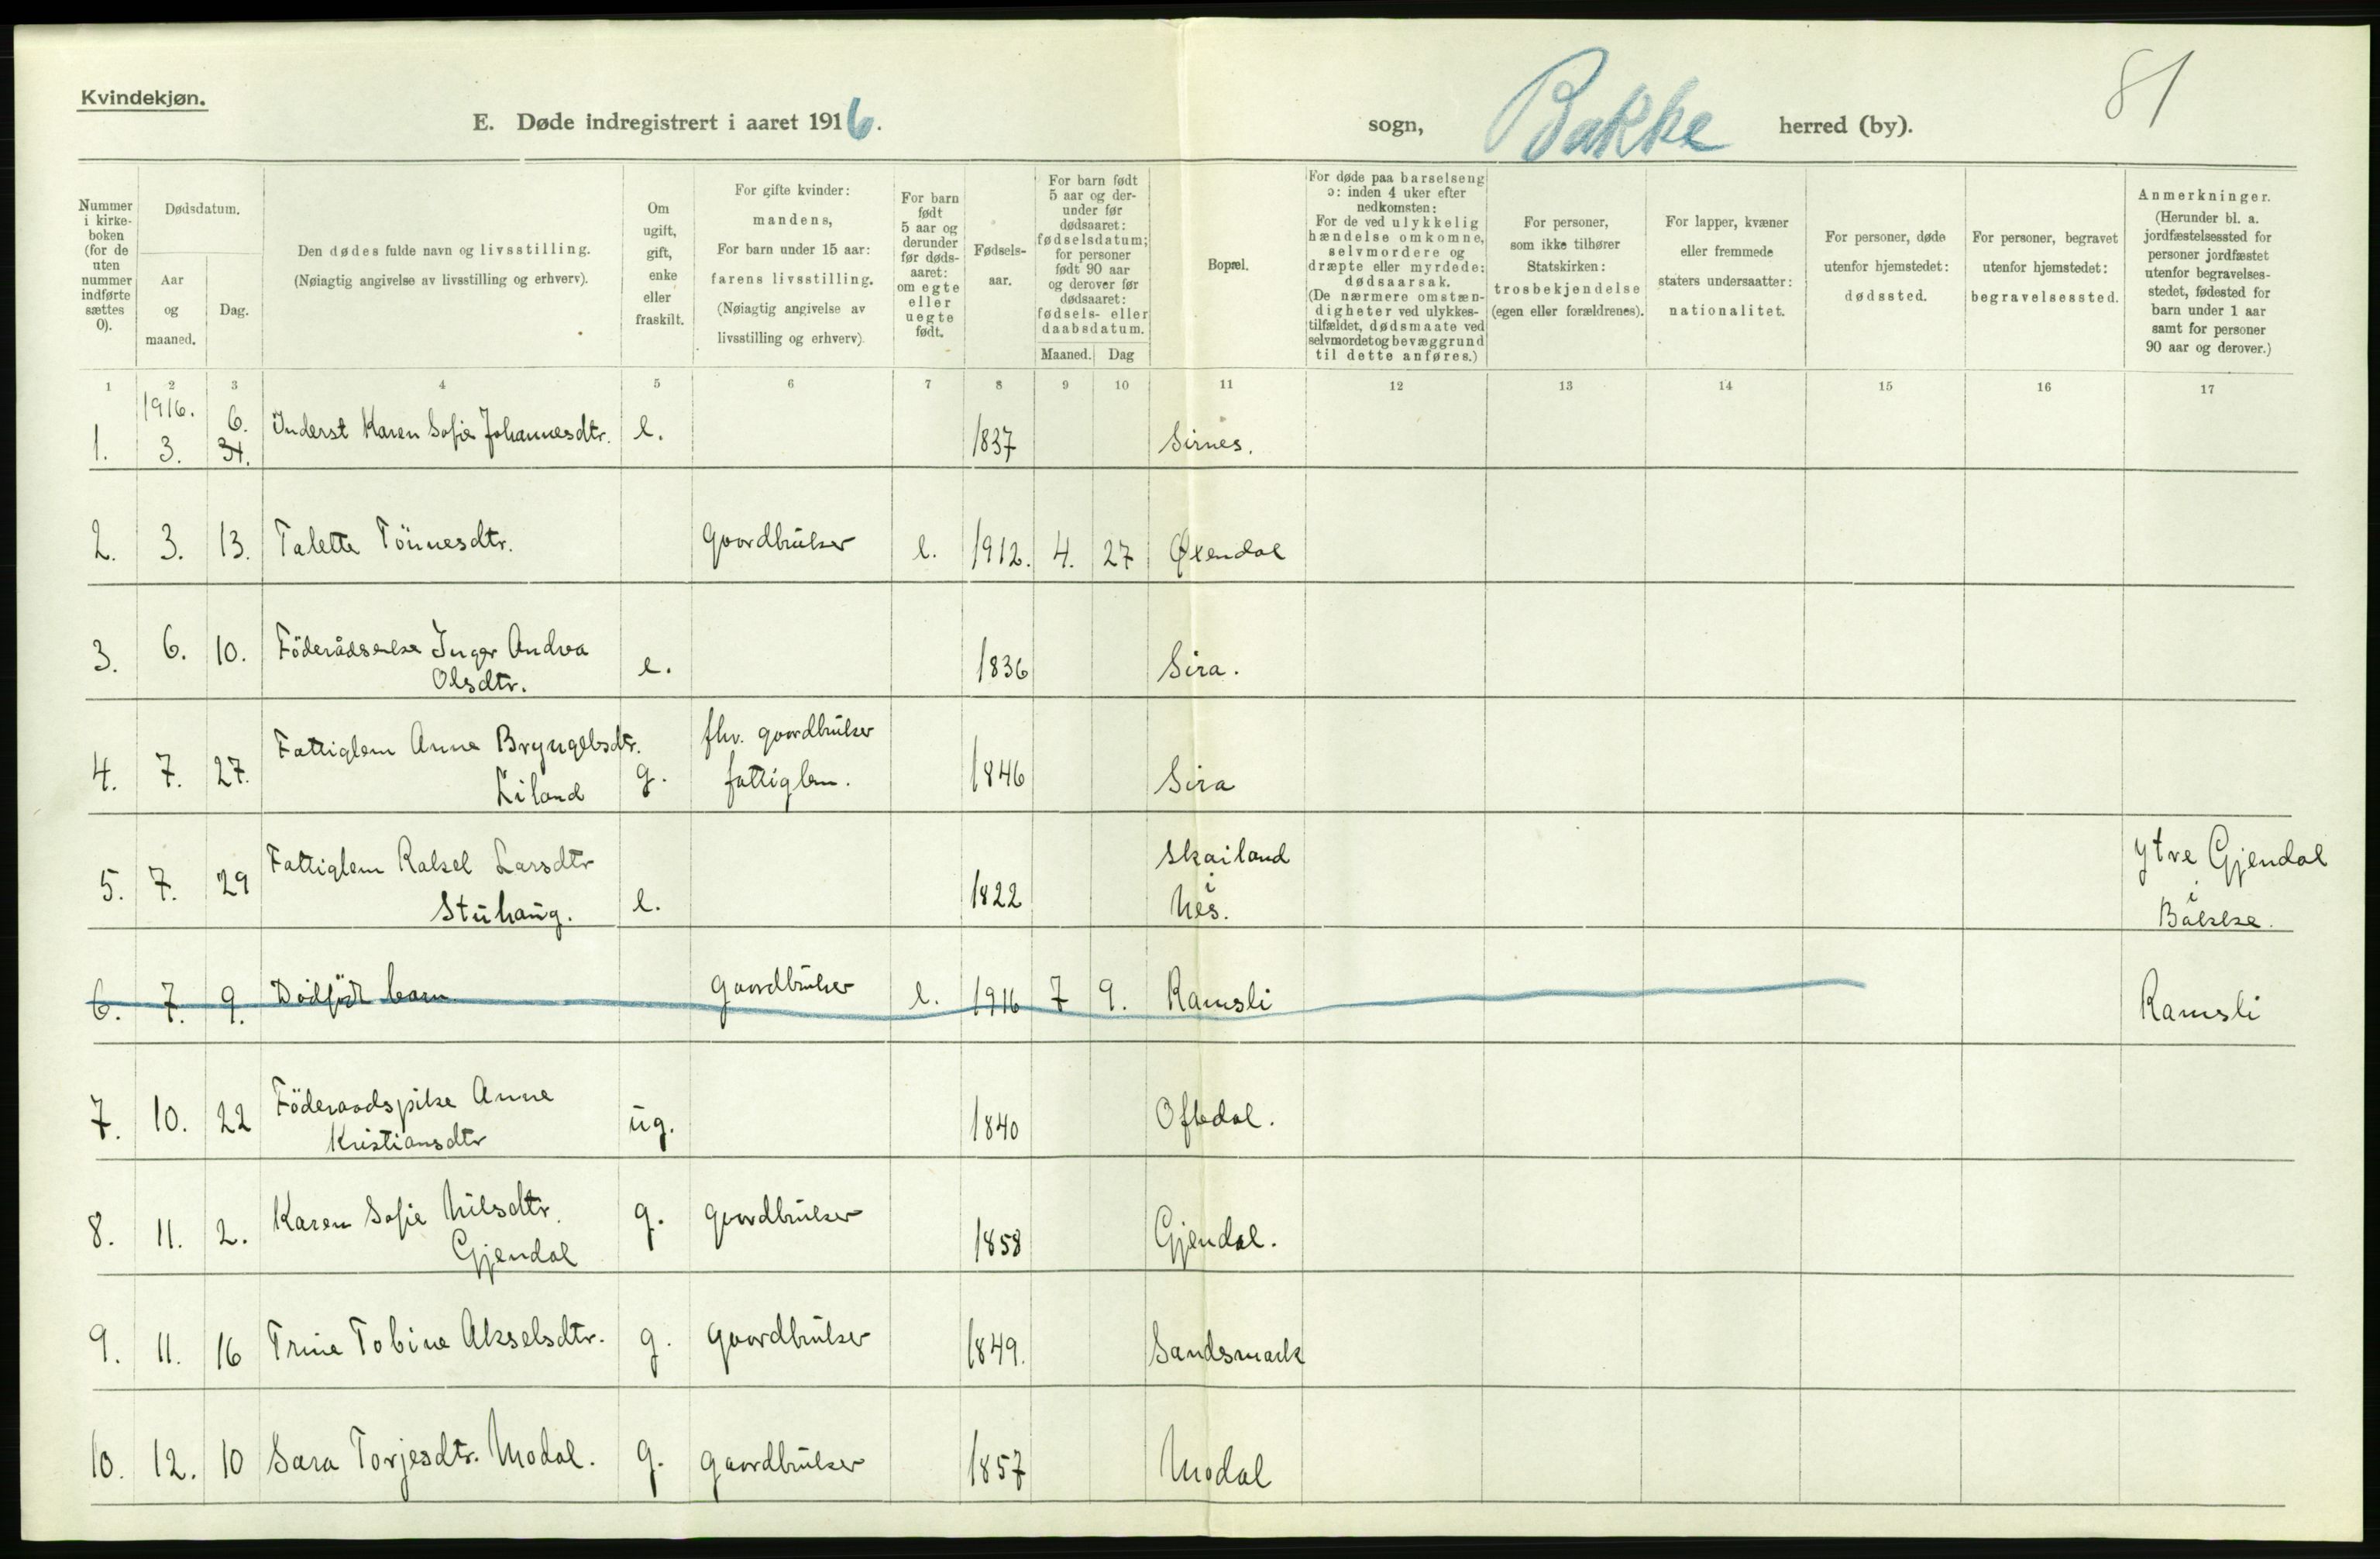 Kvindekjøn.
81
E. Døde indregistrert i aaret 1916. sogn, Bakke herred (by).
Nummer
i kirke-
boken
(for de
uten
nummer
indførte
sættes
0).
Dødsdatum.
Aar
og
maaned.
Dag.
Den dødes fulde navn og livsstilling.
(Nøiagtig angivelse av livsstilling og erhverv).
Om
ugift,
gift,
enke
eller
fraskilt.
For gifte kvinder:
mandens,
For barn under 15 aar:
farens livsstilling.
(Nøiagtig angivelse av
livsstilling og erhverv)
For barn
født
5 aar og
derunder
før døds-
aaret:
om egte
eller
uegte
født.
Fødsels-
aar.
For barn født
5 aar og der-
under før
dødsaaret:
fødselsdatum;
for personer
født 90 aar
og derover før
dødsaaret:
fødsels- eller
daabsdatum.
Maaned. Dag
Bopæl.
For døde paa barselseng
ɔ: inden 4 uker efter
nedkomsten:
For de ved ulykkelig
hændelse omkomne,
selvmordere og
dræpte eller myrdede:
dødsaarsak.
(De nærmere omstæn-
digheter ved ulykkes-
tilfældet, dødsmaate ved
selvmordet og bevæggrund
til dette anføres.)
For personer,
som ikke tilhører
Statskirken:
trosbekjendelse
(egen eller forældrenes).
For lapper, kvæner
eller fremmede
staters undersaatter:
nationalitet.
For personer, døde
utenfor hjemstedet:
dødssted.
For personer, begravet
utenfor hjemstedet:
begravelsessted.
Anmerkninger.
(Herunder bl. a.
jordfæstelsessted for
personer jordfæstet
utenfor begravelses-
stedet, fødested for
barn under 1 aar
samt for personer
90 aar og derover.)
1 2 3 4 5 6 7 8 9 10 11 12 13 14 15 16 17
1916. 6.
1. 3. Inderst Karen Sofie Johannesdtr. e. 1837 Sirnes.
2. 3. 13. Talette Tönnesdtr. Gaardbruker e. 1912. 4. 27 Øxendal
3. 6. 10. Föderådsenke Inger Andrea
Olsdtr. e. 1836 Sira.
4. 7. 27. Fattiglem Anne Bryngelsdtr.
Liland g. fhv. gaardbruker
fattiglem. 1846 Sira
5. 7. 29 Fattiglem Rakel Larsdtr
Stuhaug. e. 1822 Skailand
i
Nes. Ytre Gjendal
i
Bakke.
6. 7. 9. Dödfödt barn Gaardbruker e. 1916 7 9. Ramsli Ramsli
7. 10. 22 Föderaadspike Anne
Kristiansdtr ug. 1840 Oftedal.
8. 11. 2. Karen Sofie Nilsdtr.
Gjendal g. gaardbruker 1858 Gjendal.
9. 11. 16 Trine Tobine Akselsdtr. g. Gaardbruker 1849. Sandsmark
10. 12. 10 Sara Torjesdtr. Modal. g. gaardbruker 1857 Modal